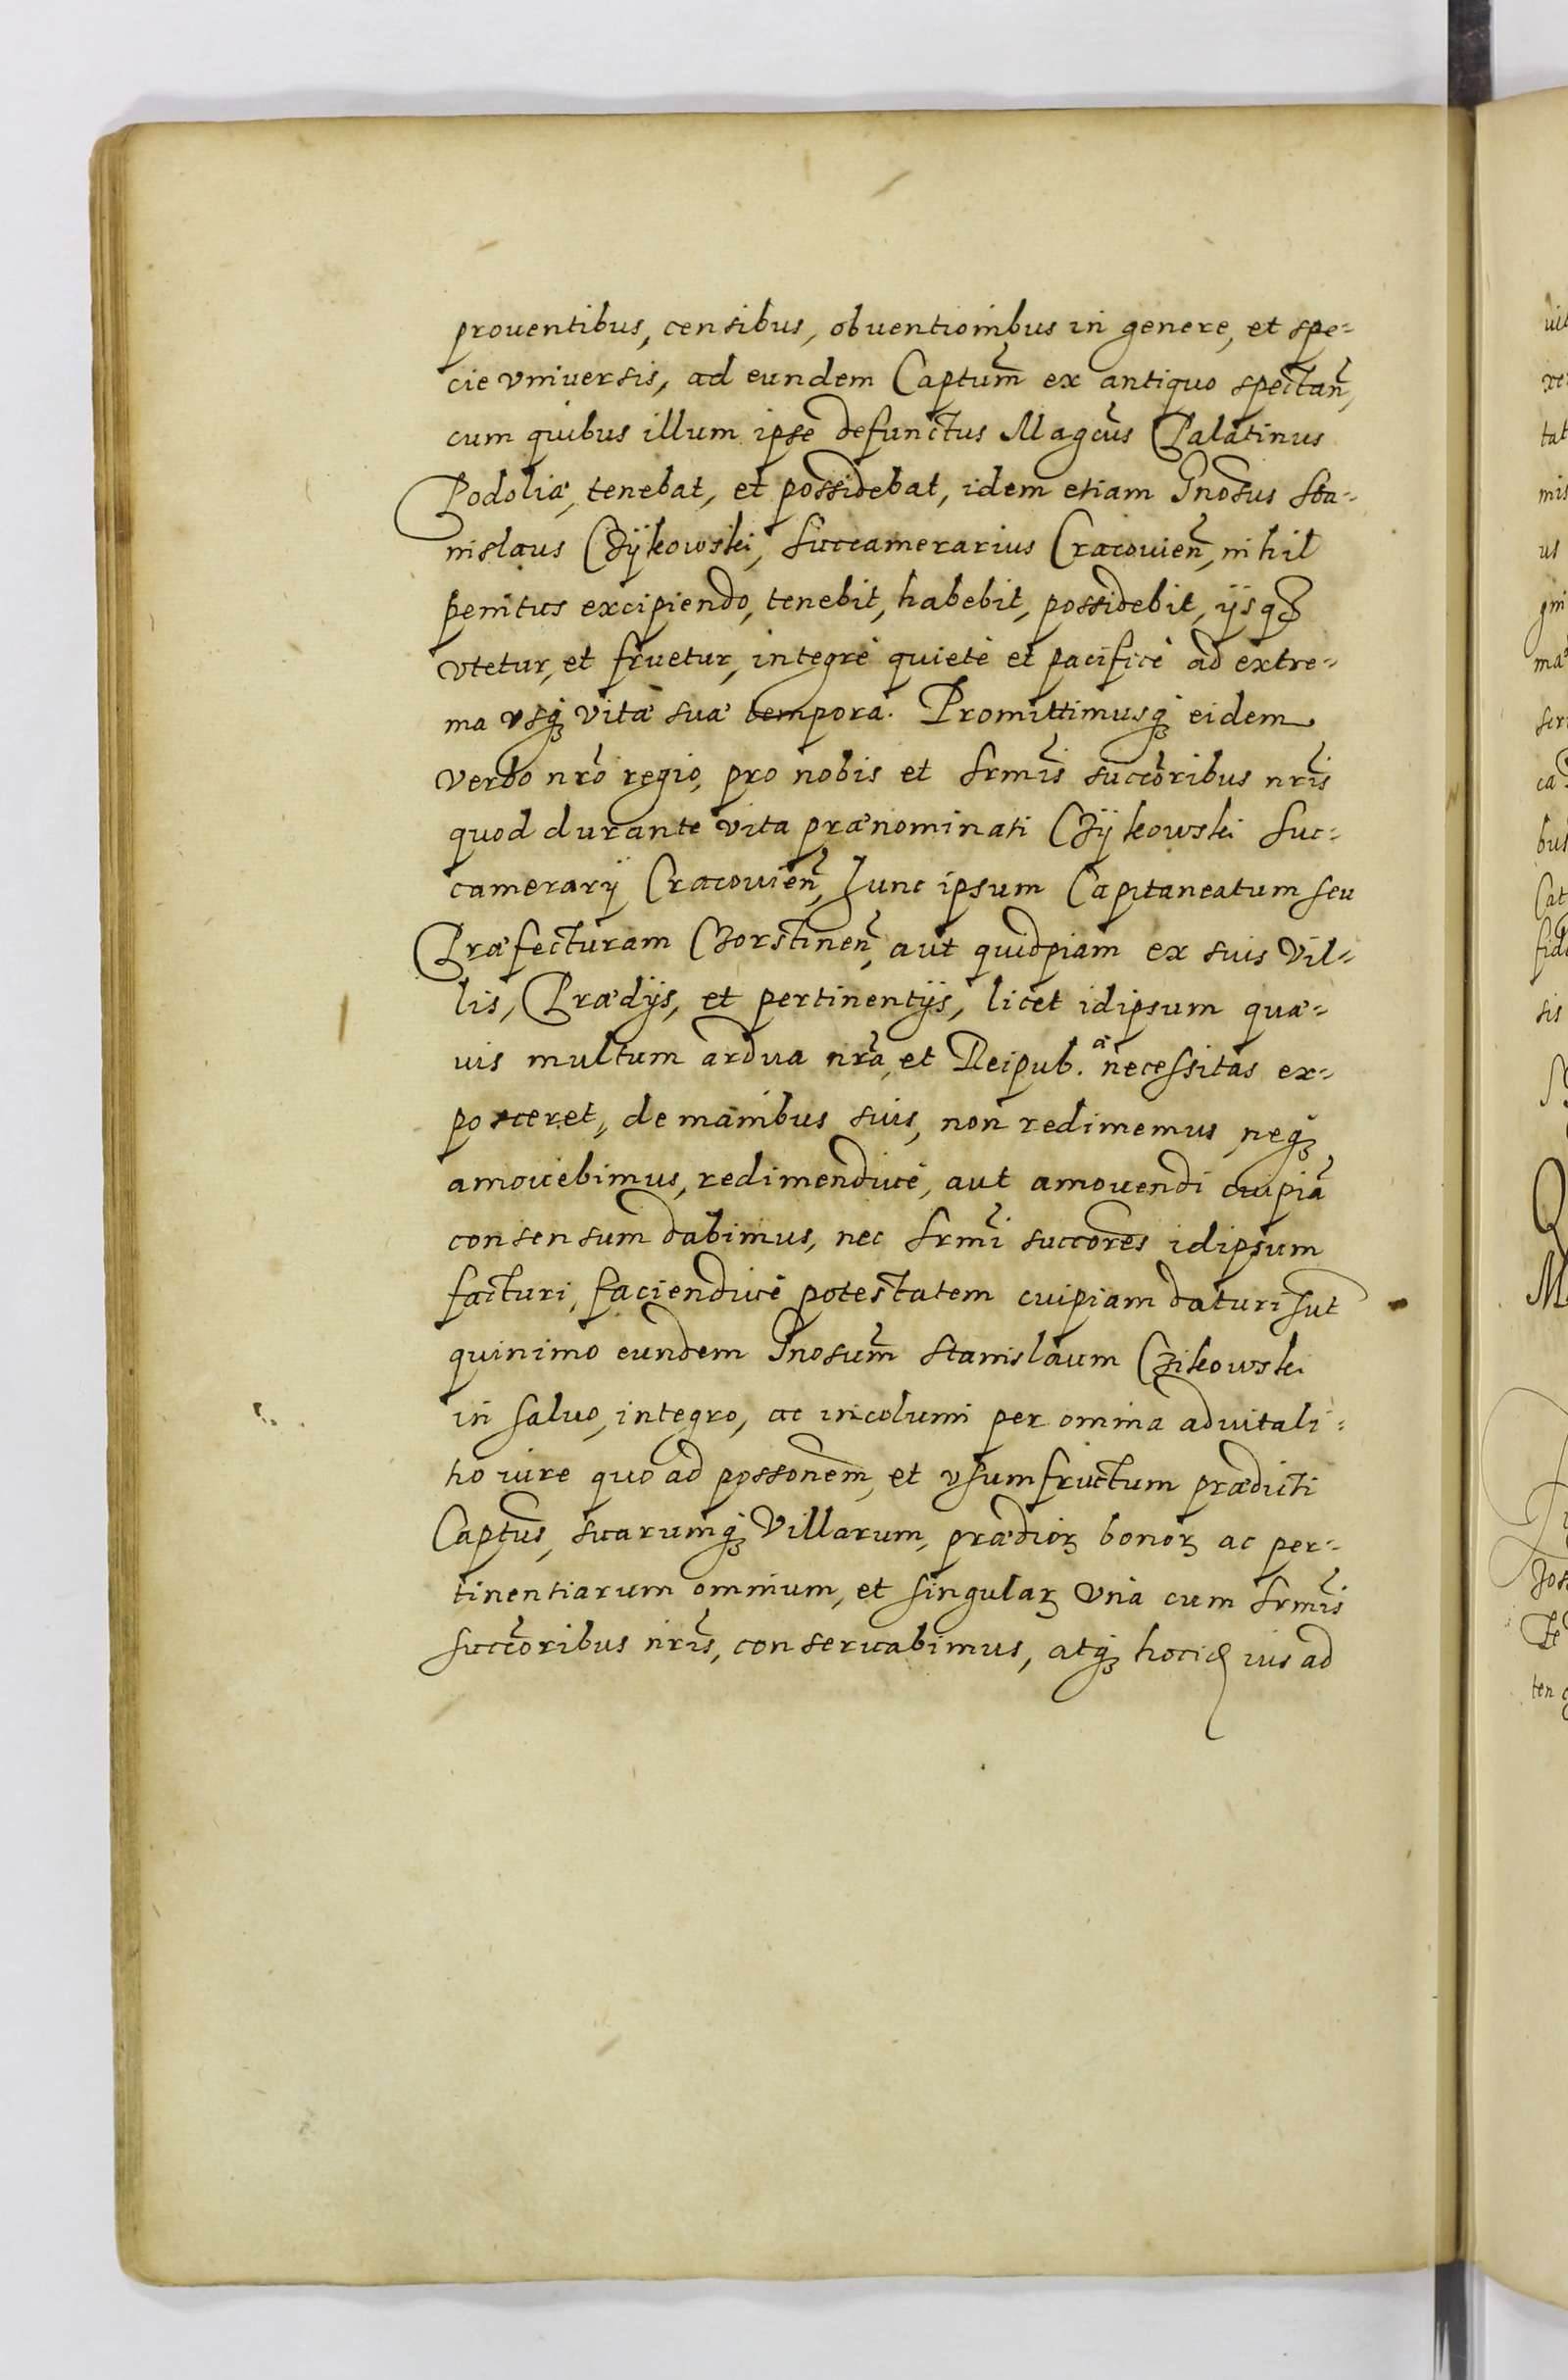 prouentibus, censibus, obuentionibus in genere, et spe-
cie vniuersis, ad eundem Captum̃ ex antiquo spectan̄,
cum quibus illum ipse defunctus Magcus Palatinus
Podoliæ, tenebat, et possidebat, idem etiam Gnosus Sta-
nislaus Czÿkowski, Succamerarius Cracouien̄, nihil
penitus excipiendo, tenebit, habebit, possidebit, ijsqꝫ
vtetur, et fruetur, integrè quietè et pacificè ad extre-
ma vsqꝫ vitæ suæ tempora. Promittimusqꝫ eidem
verbo nro regio, pro nobis et Srmis succoribus nris
quod durante vita prænominati Czÿkowski Suc-
camerarij Cracouien̄, Hunc ipsum Capitaneatum seu
Præfecturam Czorstinen̄, aut quidpiam ex suis Vil-
lis, Prædijs, et pertinentijs, licet idipsum quæ-
uis multum ardua nra, et Reipub. æ necessitas ex-
posceret, de manibus suis, non redimemus, neqꝫ
amouebimus, redimendiuè, aut amouendi cuipiā
consensum dabimus, nec Srmi succores idipsum
facturi, faciendiuè potestatem cuipiam daturi sūt
quinimo eundem Gnosum̃ Stanislaum Czikowski
in saluo, integro, ac incolumi per omnia aduitali-
tio iure quo ad possonem, et vsumfructum prædicti
Captus, suarumqꝫ Villarum, prædioꝝ bonoꝝ ac per-
tinentiarum omnium, et singulaꝝ Vnà cum Srmis
succoribus nris, conseruabimus, atqꝫ hoc id ius ad